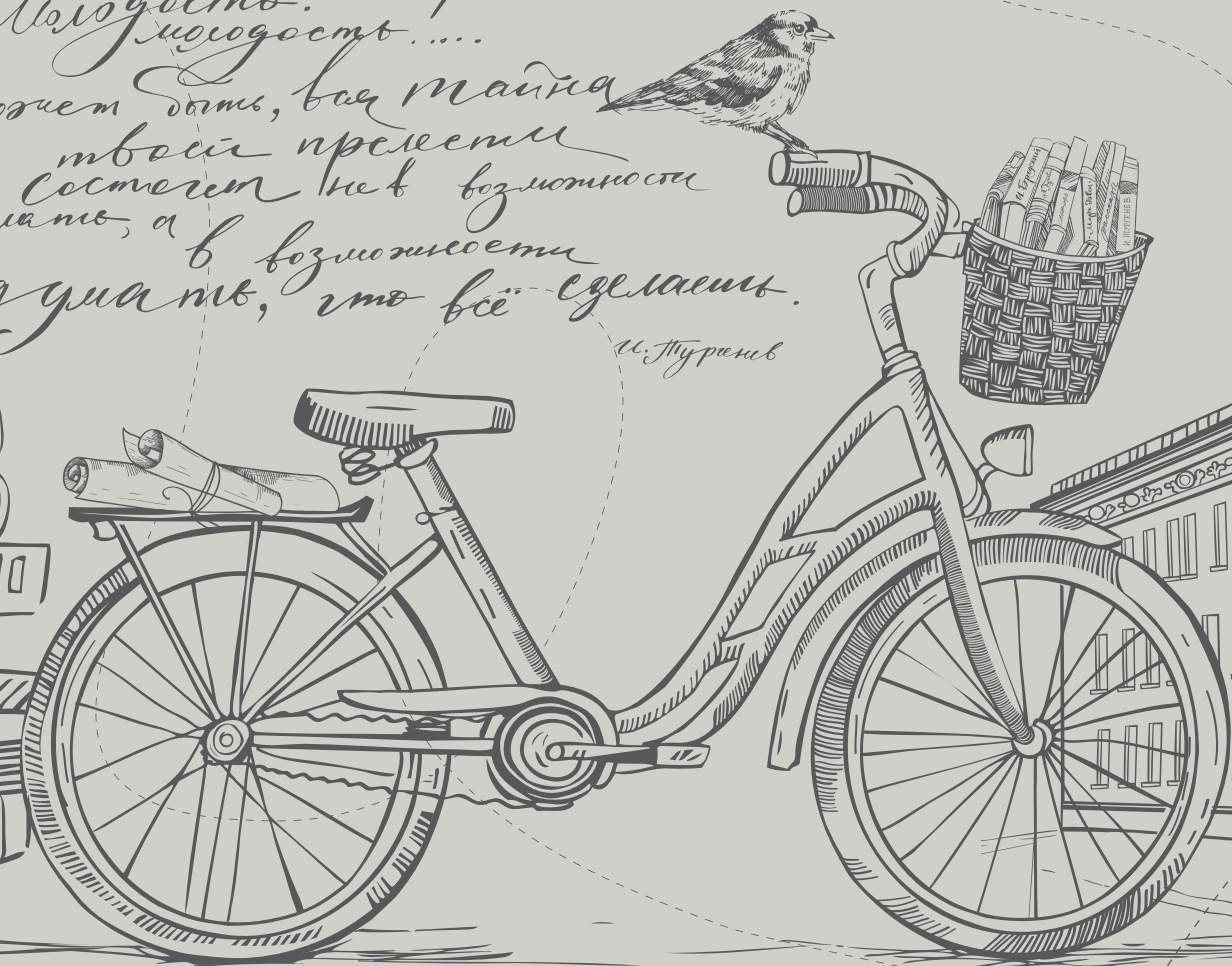 Молодость!
молодость.....
ожет быть, вся тайна
твоей прелести
состоит не в возможности
лать, а
в возможности
думать, что всё сделаешь.
И. Тургенев
И. Бродский
И. ТУРГЕНЕВ